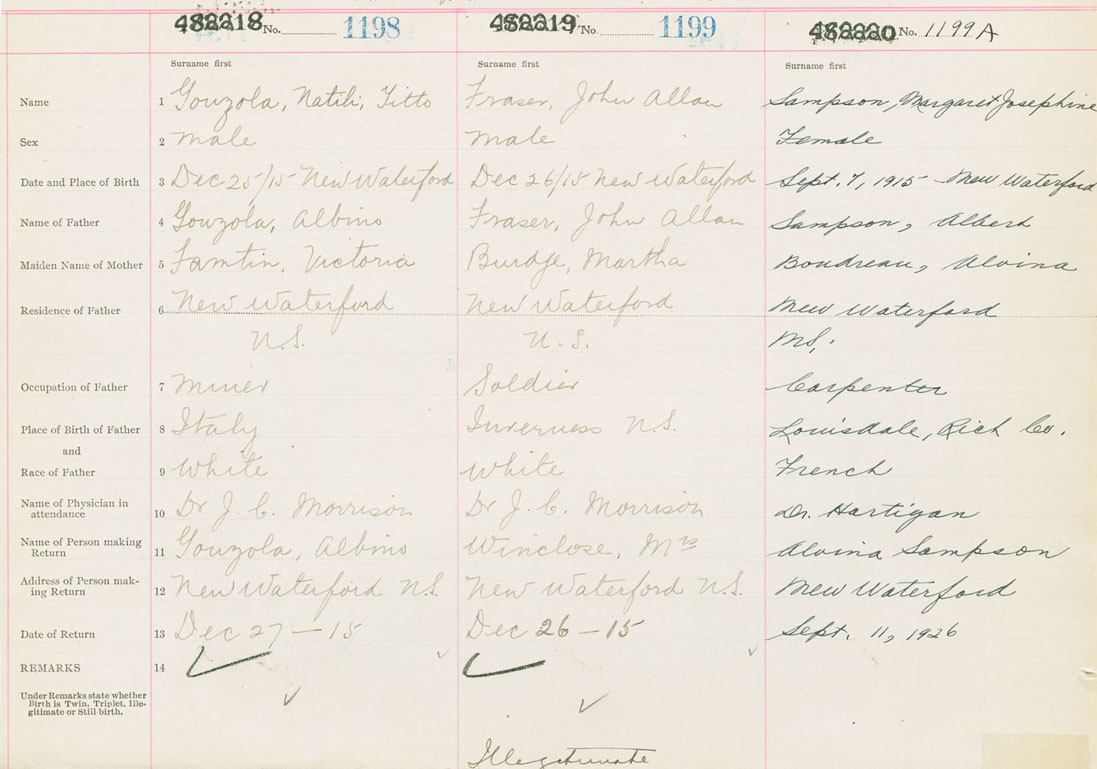 482218 No. 1198 482219 No. 1199 482220 No. 1199 A
Surname first Surname first Surname first
Name 1 Gouzola, Natili, Titto Fraser, John Allan Sampson, Margaret Josephine
Sex 2 male male Female
Date and Place of Birth 3 Dec 25/15 New Waterford Dec 26/15 New Waterford Sept. 7, 1915 - New Waterford
Name of Father 4 Gouzola, Albino Fraser, John Allan Sampson, Albert
Maiden Name of Mother 5 Famtin, Victoria Burdge, Martha Boudreau, Alvina
Residence of Father 6 New Waterford New Waterford New Waterford
N.S. N.S. NS.
Occupation of Father 7 Miner Soldier Carpenter
Place of Birth of Father 8 Italy Inverness N.S. Louisdale, Rich Co.
and
Race of Father 9 White White French
Name of Physician in
attendance 10 Dr J. C. Morrison Dr J. C. Morrison Dr. Hartigan
Name of Person making
Return 11 Gouzola, Albino Winclose, Mrs Alvina Sampson
Address of Person mak-
ing Return 12 New Waterford N.S. New Waterford N.S. New Waterford
Date of Return 13 Dec 27 — 15 Dec 26 — 15 Sept. 11, 1926
REMARKS 14
Under Remarks state whether
Birth is Twin, Triplet, Ille-
gitimate or Still birth.
Illegitimate